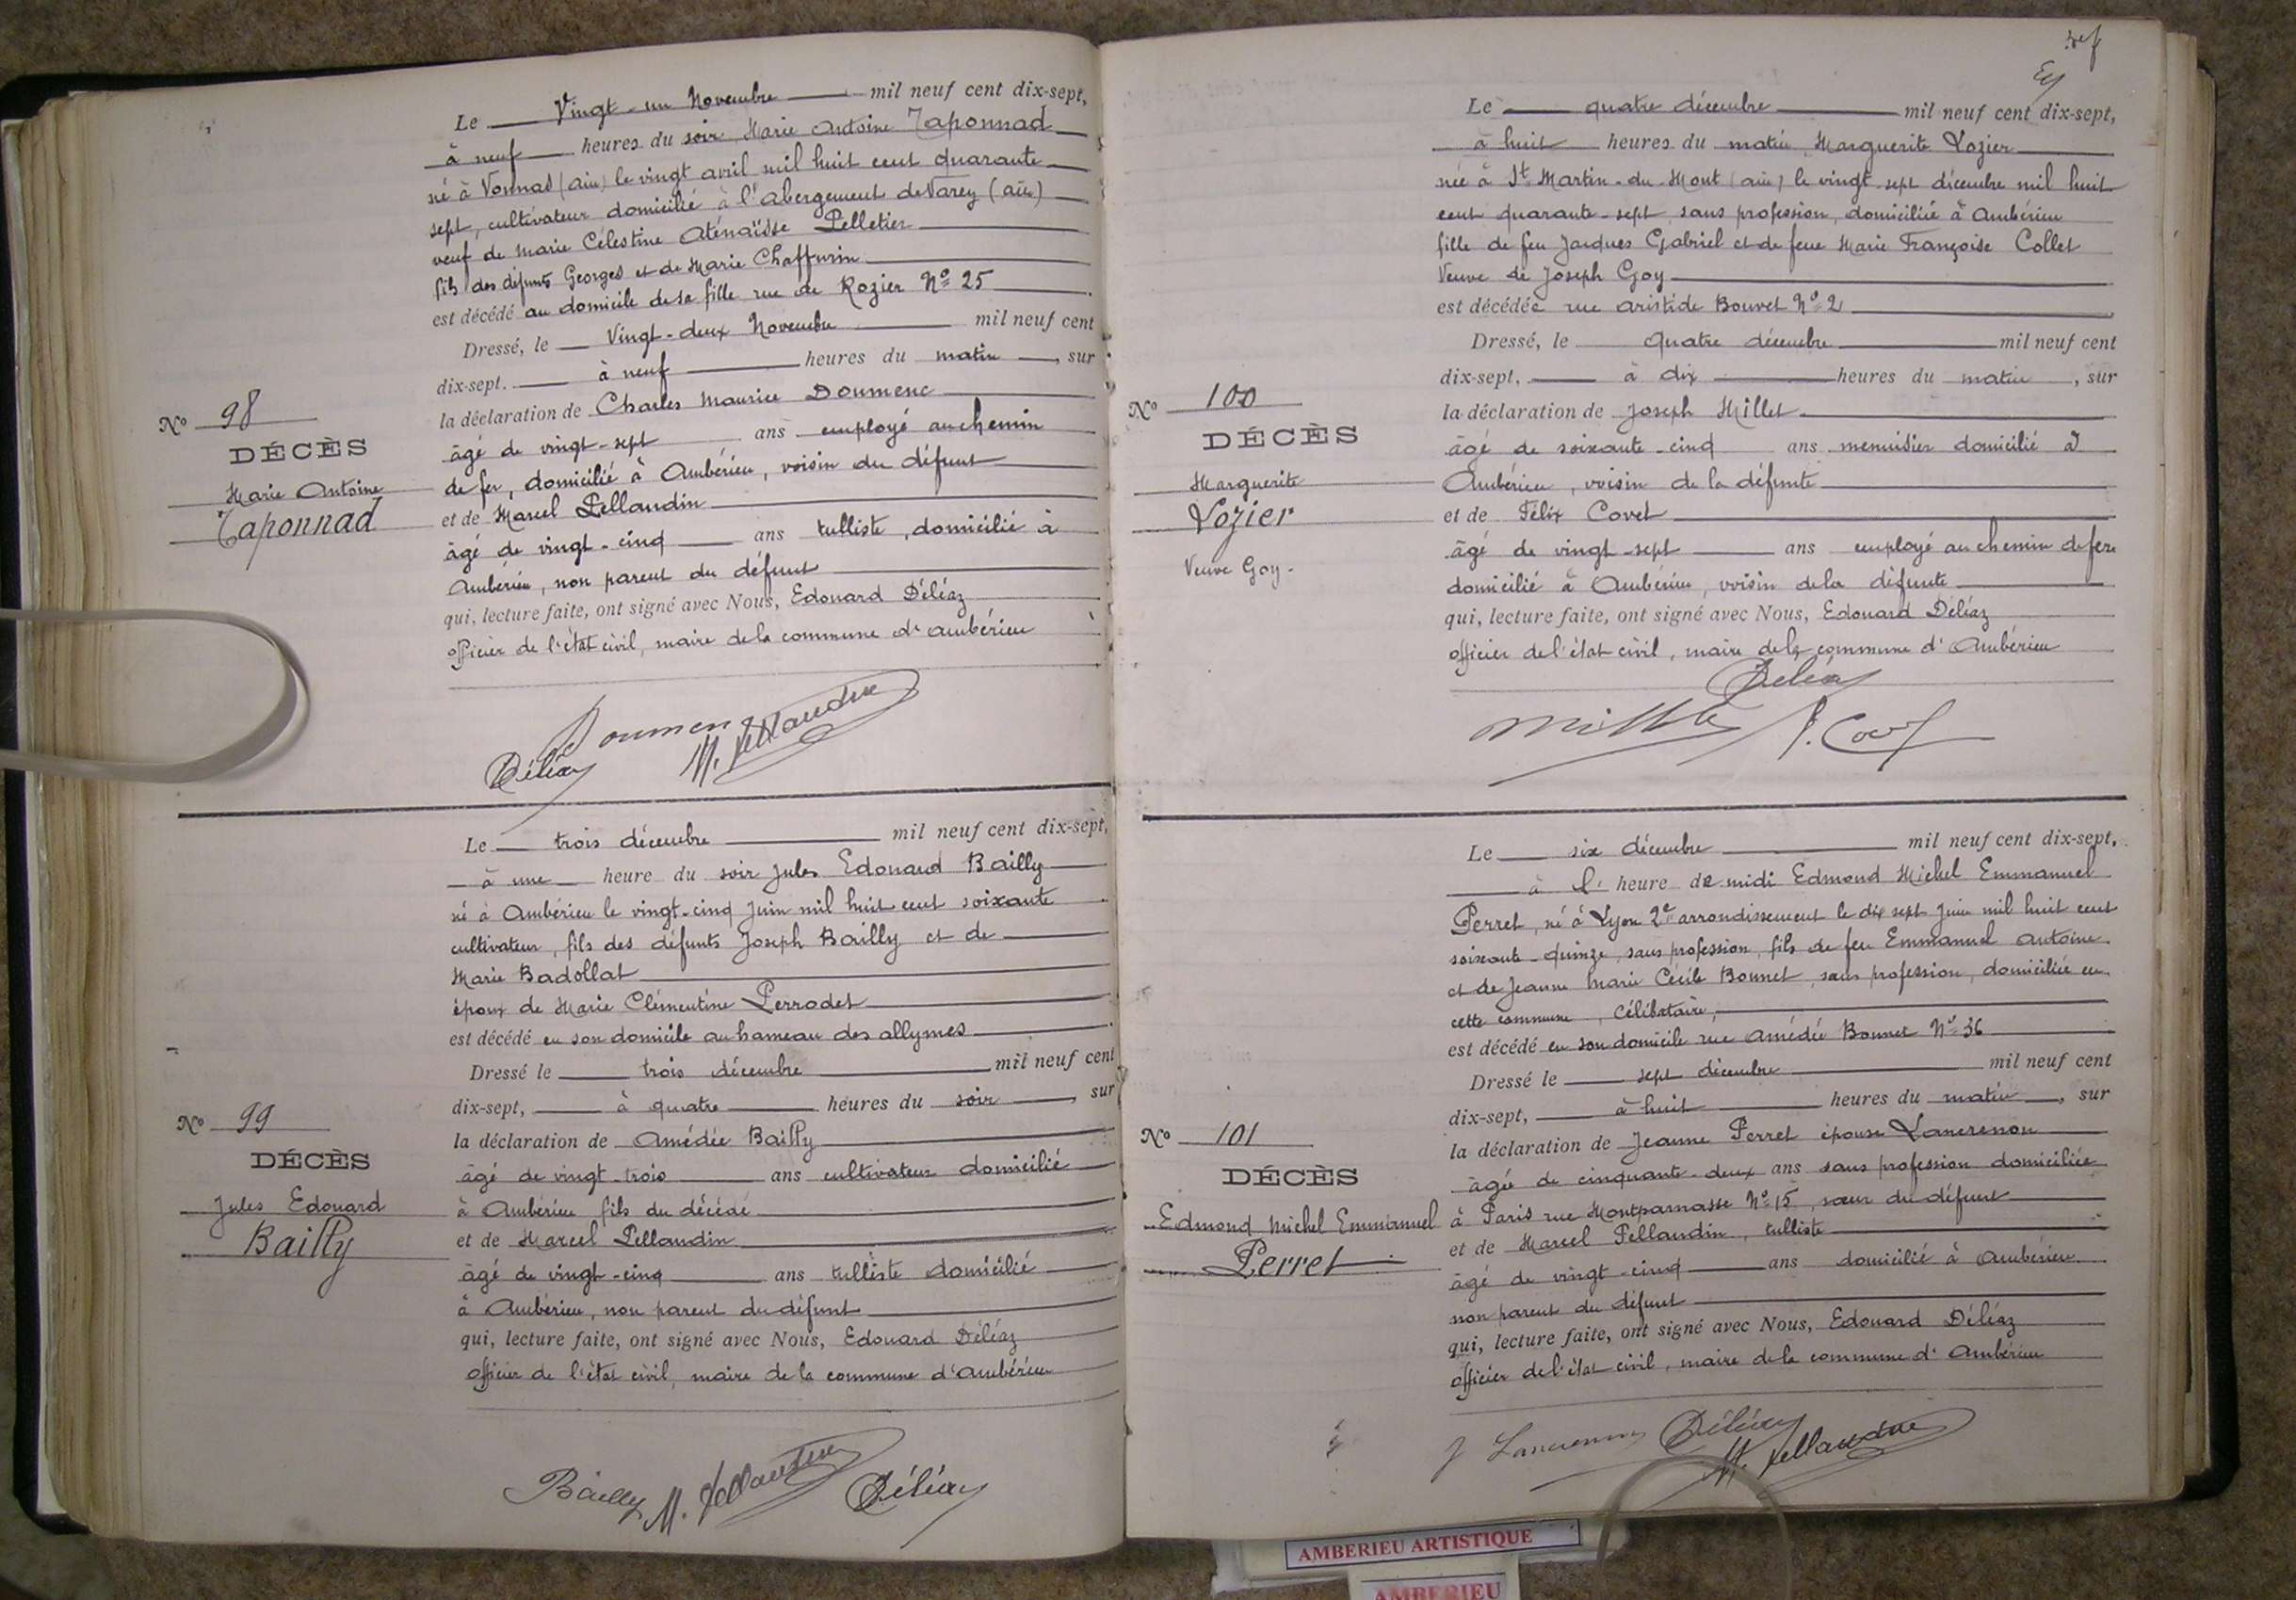 Le Vingt-un Novembre mil neuf cent dix-sept,
à neuf heures du soir Marie Antoine Taponnad
né à Vonnas (ain) le vingt avril mil huit cent quarante
sept, cultivateur domicilié à l'abergement de Varey (ain)
veuf de Marie Célestine Aténaïsse Pelletier
fils des défunts Georges et de Marie Chaffurin
est décédé au domicile de sa fille rue de Rozier Nº 25
Dressé, le Vingt-deux Novembre mil neuf cent
dix-sept. à neuf heures du matin, sur
la déclaration de Charles Maurice Doumenc
âgé de vingt-sept ans employé au chemin
de fer, domicilié à Ambérieu, voisin du défunt
et de Marcel Pellaudin
âgé de vingt-cinq ans tulliste, domicilié à
Ambérieu, non parent du défunt
qui, lecture faite, ont signé avec Nous, Edouard Déléaz
officier de l'état civil, maire de la commune d'ambérieu
Nº 98
DÉCÈS
Marie Antoine
Taponnad
Doumenc
Déléaz M. Pellaudin
Le trois décembre mil neuf cent dix-sept,
à une heure du soir Jules Edouard Bailly
né à Ambérieu le vingt-cinq Juin mil huit cent soixante
cultivateur, fils des défunts Joseph Bailly et de
Marie Badollat
époux de Marie Clémentine Perrodet
est décédé en son domicile au hameau des allymes
Dressé le trois décembre mil neuf cent
dix-sept, à quatre heures du soir, sur
la déclaration de Amédée Bailly
âgé de vingt-trois ans cultivateur domicilié
à Ambérieu fils du décédé
et de Marcel Pellaudin
âgé de vingt-cinq ans tulliste domicilié
à Ambérieu, non parent du défunt
qui, lecture faite, ont signé avec Nous, Edouard Déléaz
officier de l'état civil, maire de la commune d'Ambérieu
Nº 99
DÉCÈS
Jules Edouard
Bailly
Bailly M. Pellaudin Déléaz
Le quatre décembre mil neuf cent dix-sept,
à huit heures du matin, Marguerite Lozier
née à St Martin-du-Mont (ain) le vingt-sept décembre mil huit
cent quarante-sept, sans profession, domiciliée à Ambérieu
fille de feu Jacques Gabriel et de feue Marie Françoise Collet
Veuve de Joseph Goy
est décédée rue aristide Bouvet Nº 2
Dressé, le quatre décembre mil neuf cent
dix-sept, à dix heures du matin, sur
la déclaration de Joseph Millet
âgé de soixante-cinq ans menuisier domicilié à
Ambérieu, voisin de la défunte
et de Félix Covet
âgé de vingt-sept ans employé au chemin de fer
domicilié à Ambérieu, voisin de la défunte
qui, lecture faite, ont signé avec Nous, Edouard Déléaz
officier de l'état civil, maire de la commune d'Ambérieu
Nº 100
DÉCÈS
Marguerite
Lozier
Veuve Goy.
Déléaz
Millet
Le six décembre mil neuf cent dix-sept.
à l' heure de midi Edmond Michel Emmanuel
Perret, né à Lyon 2e arrondissement le dix sept Juin mil huit cent
soixante-quinze, sans profession, fils de feu Emmanuel antoine
et de Jeanne Marie Cécile Bonnet, sans profession, domiciliée en
cette commune, célibataire,
est décédé en son domicile rue Amédée Bonnet Nº 36
Dressé le sept décembre mil neuf cent
dix-sept, à huit heures du matin, sur
la déclaration de Jeanne Perret épouse Lancrenon
âgée de cinquante-deux ans sans profession domiciliée
à Paris rue Montparnasse Nº 15, sœur du défunt
et de Marcel Pellaudin, tulliste
âgé de vingt-cinq ans domicilié à Ambérieu
non parent du défunt
qui, lecture faite, ont signé avec Nous, Edouard Déléaz
officier de l'état civil, maire de la commune d'Ambérieu
Nº 101
DÉCÈS
Edmond Michel Emmanuel
Perret
J Lancrenon Déléaz
M. Pellaudin
AMBERIEU ARTISTIQUE
AMBERIEU